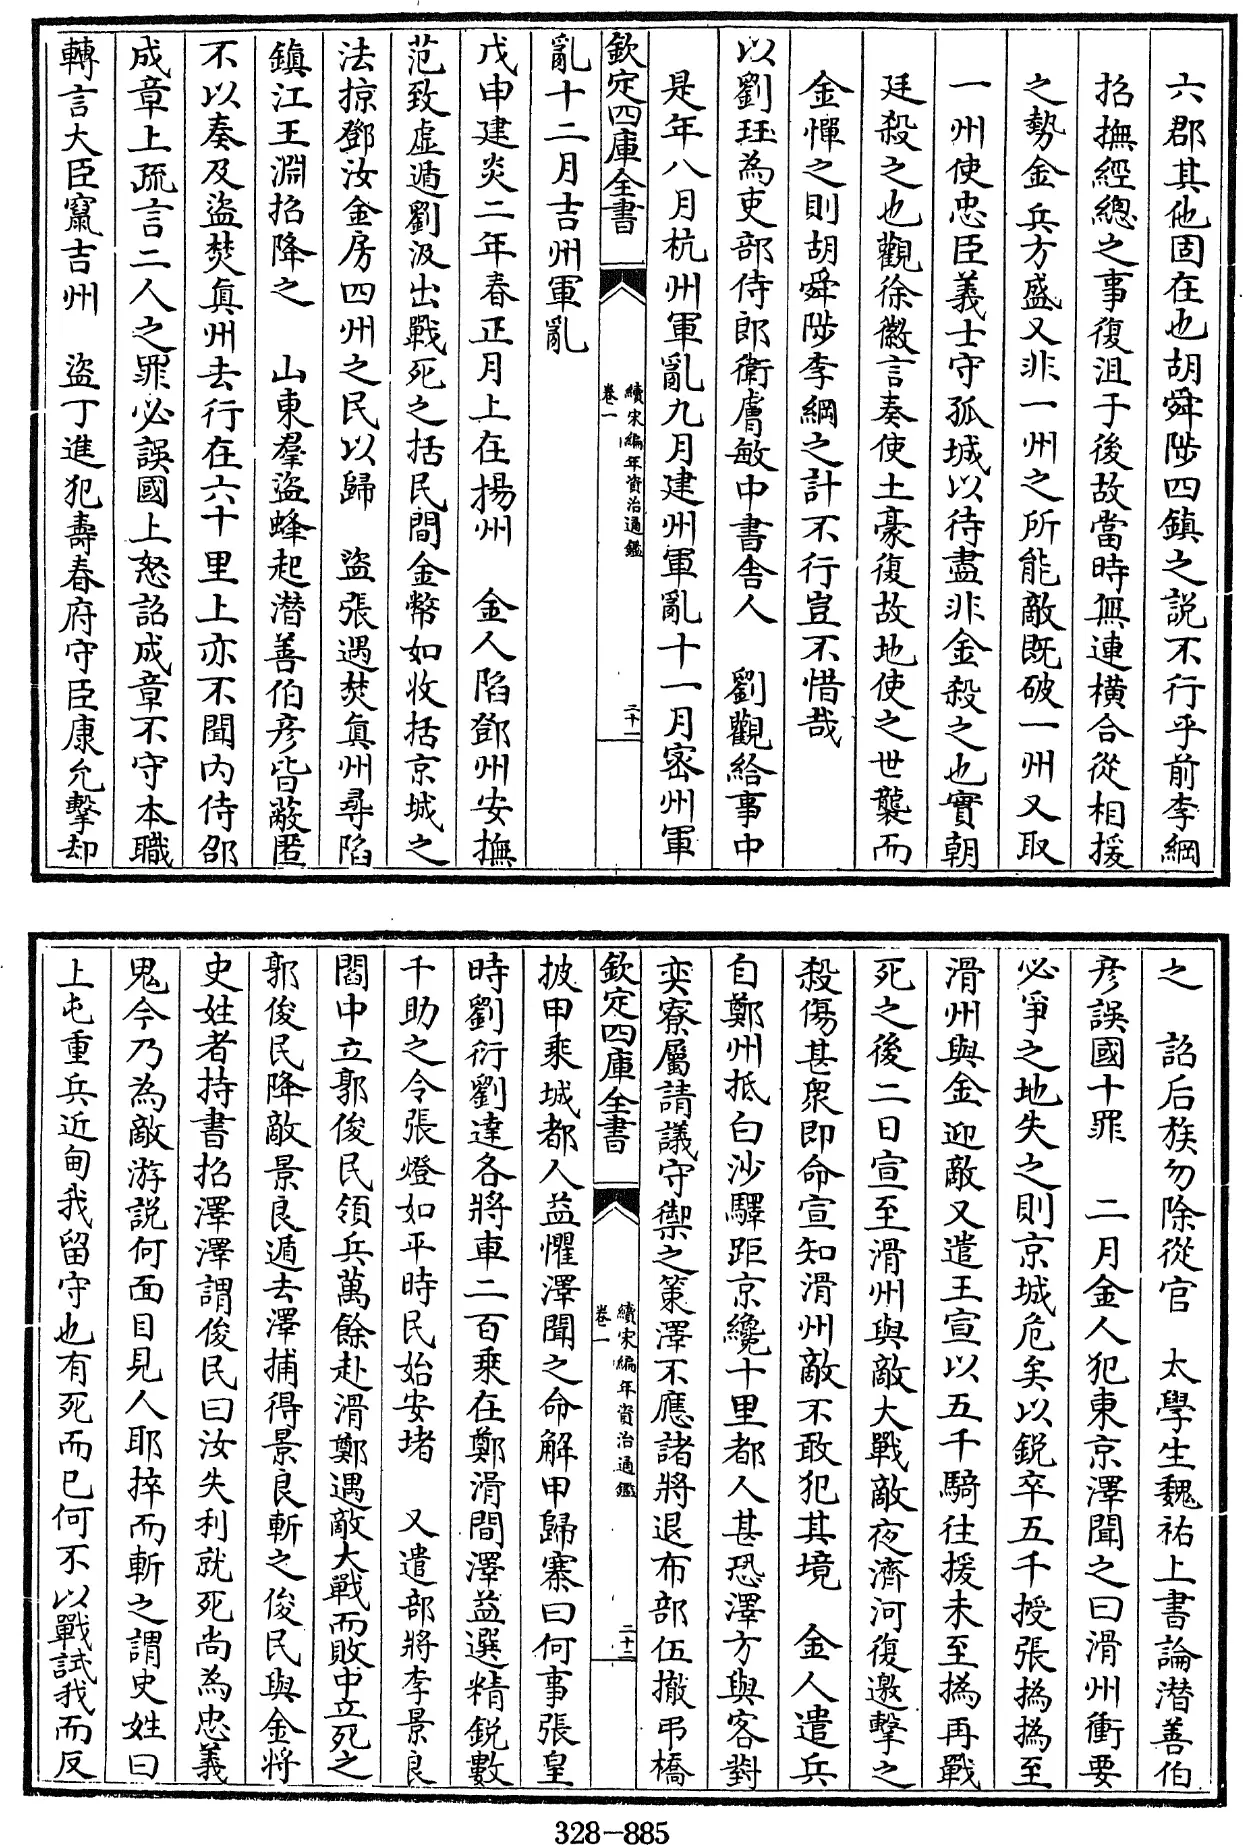 六郡其他固在也胡舜陟四鎮之説不行乎前李綱
招撫經總之事復沮于後故當時無連横合從相援
之勢金兵方盛又非一州之所能敵既破一州又取
一州使忠臣義士守孤城以待盡非金殺之也實朝
廷殺之也觀徐徽言奏使土豪復故地使之世襲而
金憚之則胡舜陟李綱之計不行豈不惜哉
以劉珏為吏部侍郎衛膚敏中書舎人　劉觀給事中
是年八月杭州軍亂九月建州軍亂十一月密州軍
欽定四庫全書
續宋編年資治通鑑
卷一
二十一
亂十二月吉州軍亂
戊申建炎二年春正月上在揚州　金人陷鄧州安撫
范致虚遁劉汲出戰死之括民間金幣如收括京城之
法掠鄧汝金房四州之民以歸　盜張遇焚真州尋陷
鎮江王淵招降之　山東羣盜蜂起潛善伯彦皆蔽匿
不以奏及盜焚真州去行在六十里上亦不聞内侍邵
成章上疏言二人之罪必誤國上怒詔成章不守本職
轉言大臣竄吉州　盜丁進犯壽春府守臣康允擊却
之　詔后族勿除從官　太學生魏祐上書論潛善伯
彦誤國十罪　二月金人犯東京澤聞之曰滑州衝要
必爭之地失之則京城危矣以鋭卒五千授張撝撝至
滑州與金迎敵又遣王宣以五千騎往援未至撝再戰
死之後二日宣至滑州與敵大戰敵夜濟河復邀擊之
殺傷甚衆即命宣知滑州敵不敢犯其境　金人遣兵
自鄭州抵白沙驛距京纔十里都人甚恐澤方與客對
奕寮屬請議守禦之策澤不應諸將退布部伍撤弔橋
欽定四庫全書
續宋編年資治通鑑
卷一
二十二
披甲乘城都人益懼澤聞之命解甲歸寨曰何事張皇
時劉衍劉達各將車二百乘在鄭滑間澤益選精鋭數
千助之令張燈如平時民始安堵　又遣部將李景良
閻中立郭俊民領兵萬餘赴滑鄭遇敵大戰而敗中立死之
郭俊民降敵景良遁去澤捕得景良斬之俊民與金將
史姓者持書招澤澤謂俊民曰汝失利就死尚為忠義
鬼今乃為敵游説何面目見人耶捽而斬之謂史姓曰
上屯重兵近甸我留守也有死而已何不以戰試我而反
328-885